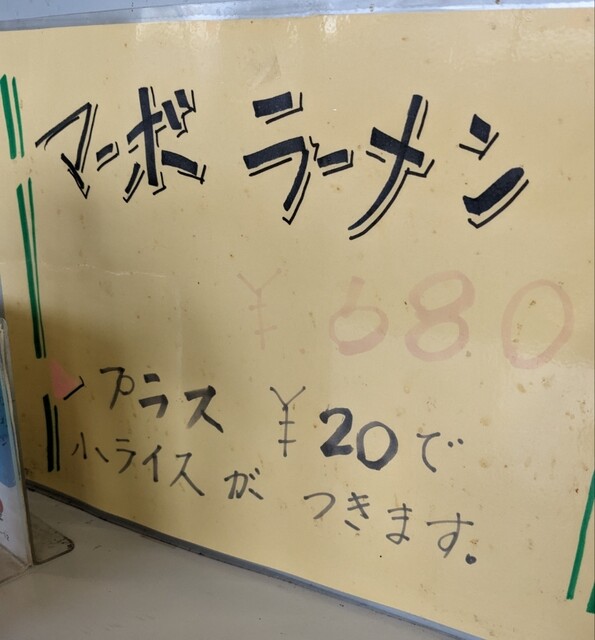 マーボ ラーメン
¥680
プラス ¥20で
小ライスが つきます。